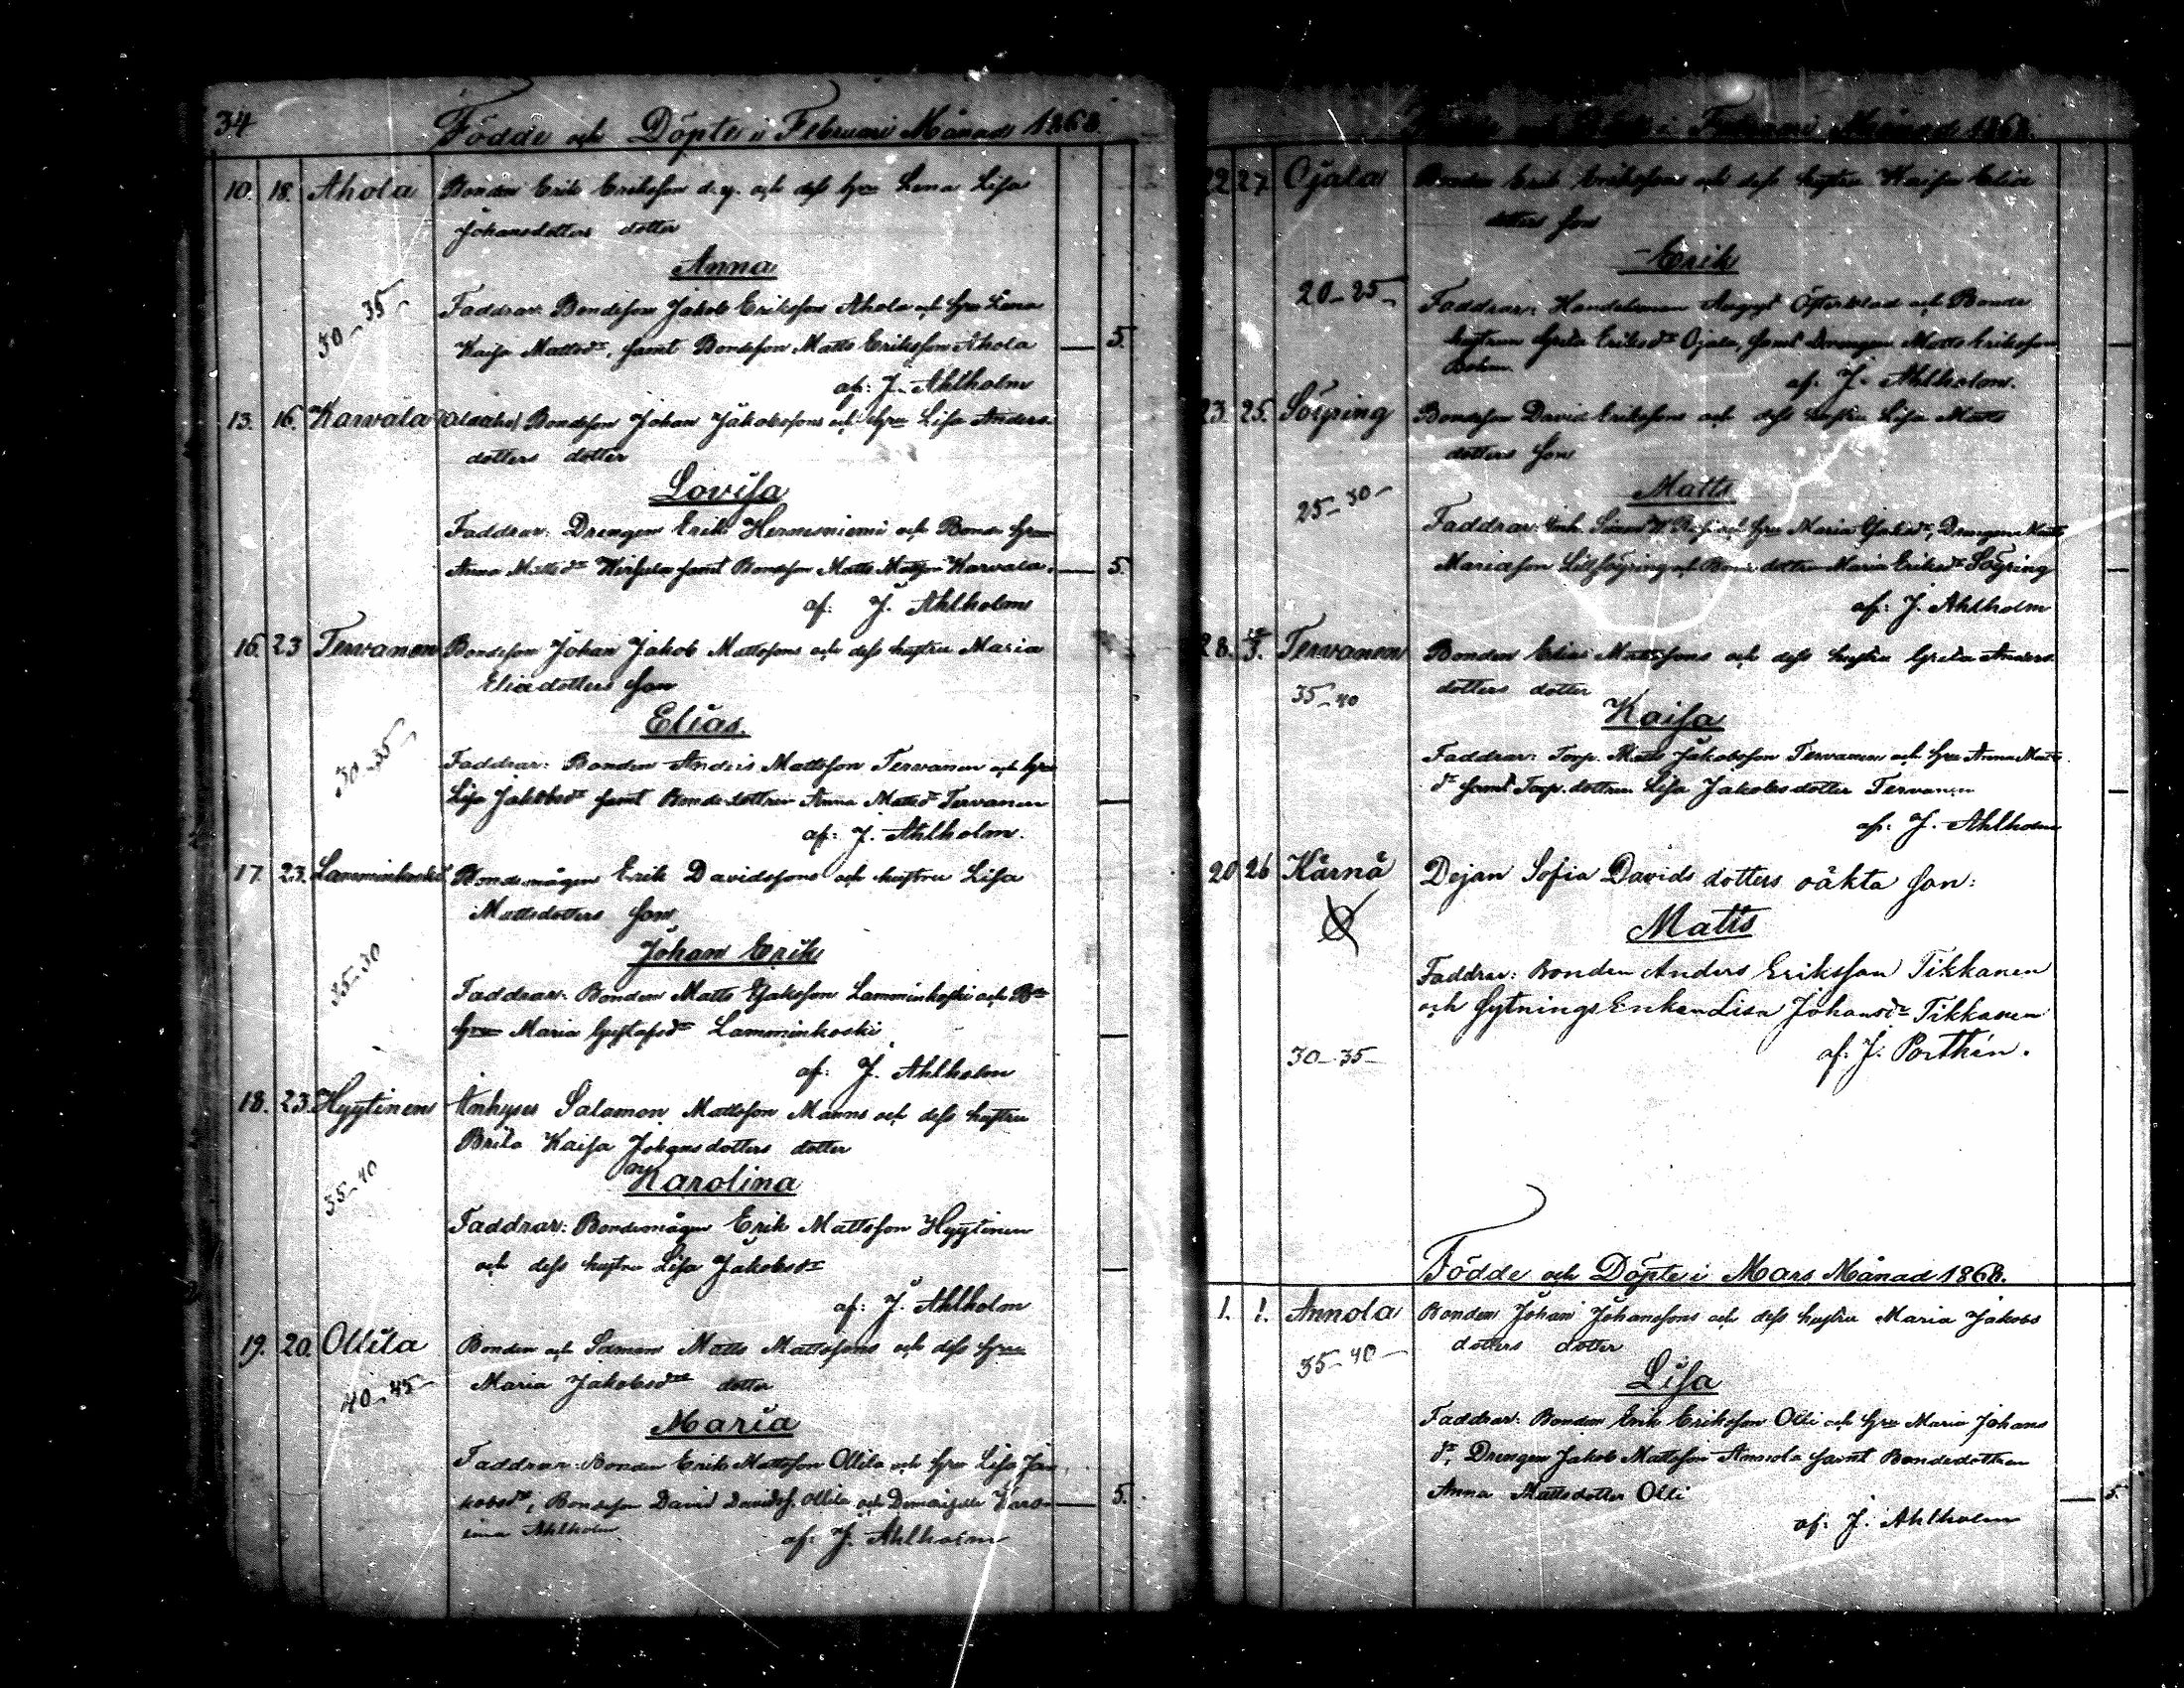 34
Födde och Döpte i Februari Månad 1868.
10. 18. Ahola Bonden Erik Eriksson d.y. och dess hru Lena Lisa
Johansdotters dotter
Anna
30-35- Faddrar: Bondeson Jakob Eriksson Ahola och hru Lena
Kaisa Mattsdr, samt Bondeson Matts Eriksson Ahola — 5.
af: J. Ahlholm
13. 16. Karvala Bondeson Johan Jakobssons och hru Lisa Anders-
dotters dotter
Lovisa
Faddrar: Drengen Erik Hernesniemi och Bonde hru
Anna Mattsdr samt Bondeson Matts Mattsson Karvala. — 5.
af: J. Ahlholm
16. 23 Tervanen Bondeson Johan Jakob Mattssons och dess hustru Maria
Eliædotters son
Elias.
30-35- Faddrar: Bonden Anders Mattsson Tervanen och hru
Lisa Jakobsdr samt Bondedottren Anna Mattsdr Tervanen —
af: J. Ahlholm.
17. 23. Lamminkoski Bondemågen Erik Davidssons och hustru Lisa
Mattsdotters son
Johan Erik
35-30 Faddrar: Bonden Matts Esaksson Lamminkoski och Bde
hru Maria Gustafsdr Lamminkoski —
af: J. Ahlholm
18. 23. Hyytinen Inhyses Salamon Mattsson Manns och dess hustru
Brita Kaisa Johansdotters dotter
Karolina
35-40
Faddrar: Bondemågen Erik Mattsson Hyytinen
och dess hustru Lisa Jakobsdr —
af: J. Ahlholm
19. 20. Ollila Bonden och Matts Mattssons och dess hru
40-45- Maria Jakobsdrs dotter
Maria
Faddrar: Bonden Erik Mattsson Ollila och hru Lisa Ja-
kobsdr, Bondeson David Davidss. Ollila och Karo- — 5.
lina Ahlholm
af: J. Ahlholm
Födde och Döpte i Februari Månad 1868.
22 27. Ojala Bonden Erik Erikssons och dess hustru Kaisa Eliæ
dotters son
Erik
20-25- Faddrar: Handelsman August Österblad och Bonde
hustrun Greta Eriksdr Ojala, samt Drengen Matts Eriksson —
af: J. Ahlholm.
23. 25. Söyring Bondeson David Erikssons och dess hustru Lisa Matts
dotters son
Matts
25-30- Faddrar: Inh. och hru Maria Jakobsdr, Drengen Matts
Mariason Lillsöyring och Bonde dottren Maria Eriksdr Söyring —
af: J. Ahlholm
28. 15/3. Tervanen Bonden Elias Mattssons och dess hustru Greta Anders
35-40 dotters dotter
Kaisa
Faddrar: Torp. Matts Jakobsson Tervanen och hru Anna Matts
dr samt Torp. dottren Lisa Jakobsdotter Tervanen —
af: J. Ahlholm
20 26 Kärnä Dejan Sofia Davids dotters oäkta son:
Matts
Faddrar: Bonden Anders Eriksson Tikkanen
och SytningsEnkan Lisa Johansdr Tikkanen
30-35- af: J. Porthén.
Födde och Döpte i Mars Månad 1868.
1. 1. Annola Bonden Johan Johanssons och dess hustru Maria Jakobs
35-40- dotters dotter
Lisa
Faddrar: Bonden Erik Eriksson Olli och hru Maria Johans
dr, Drengen Jakob Mattsson Annola samt Bondedottren
Anna Mattsdotter Olli — 5.
af: J. Ahlholm